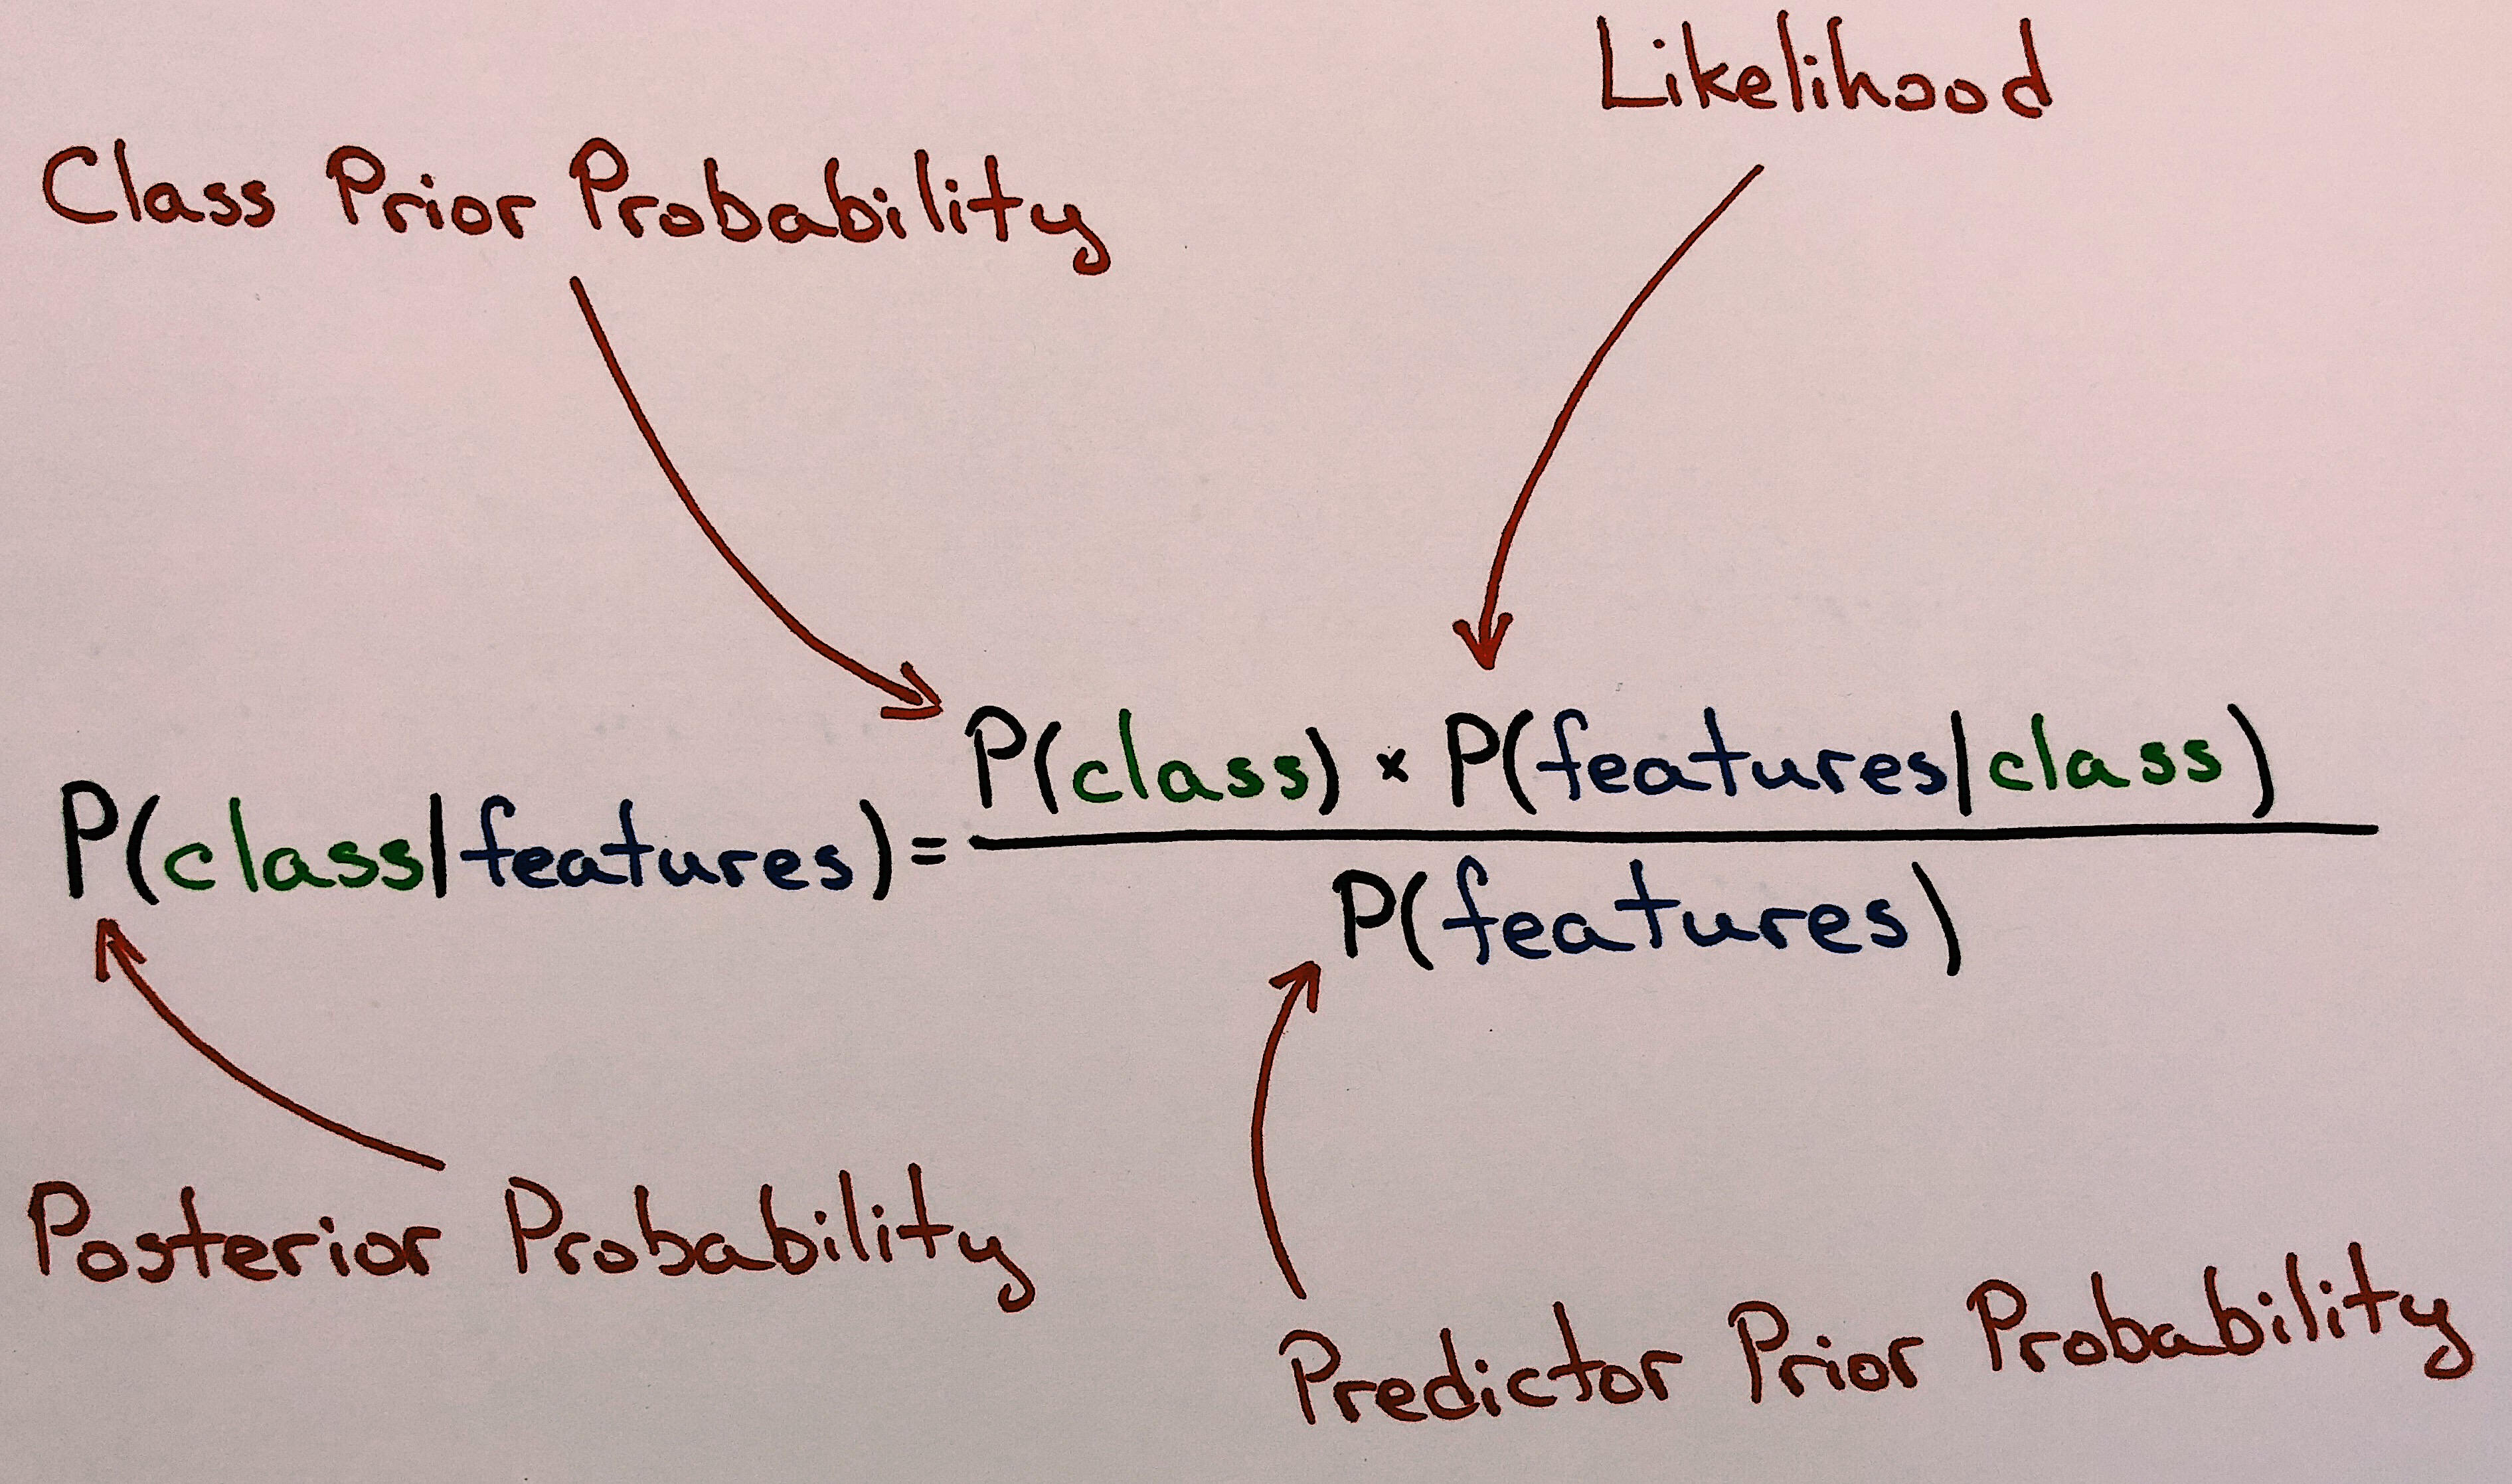 Likelihood
Class Prior Probability
P(class) × P(features|class)
P(class|features)=
P(features)
Posterior Probability
Predictor Prior Probability